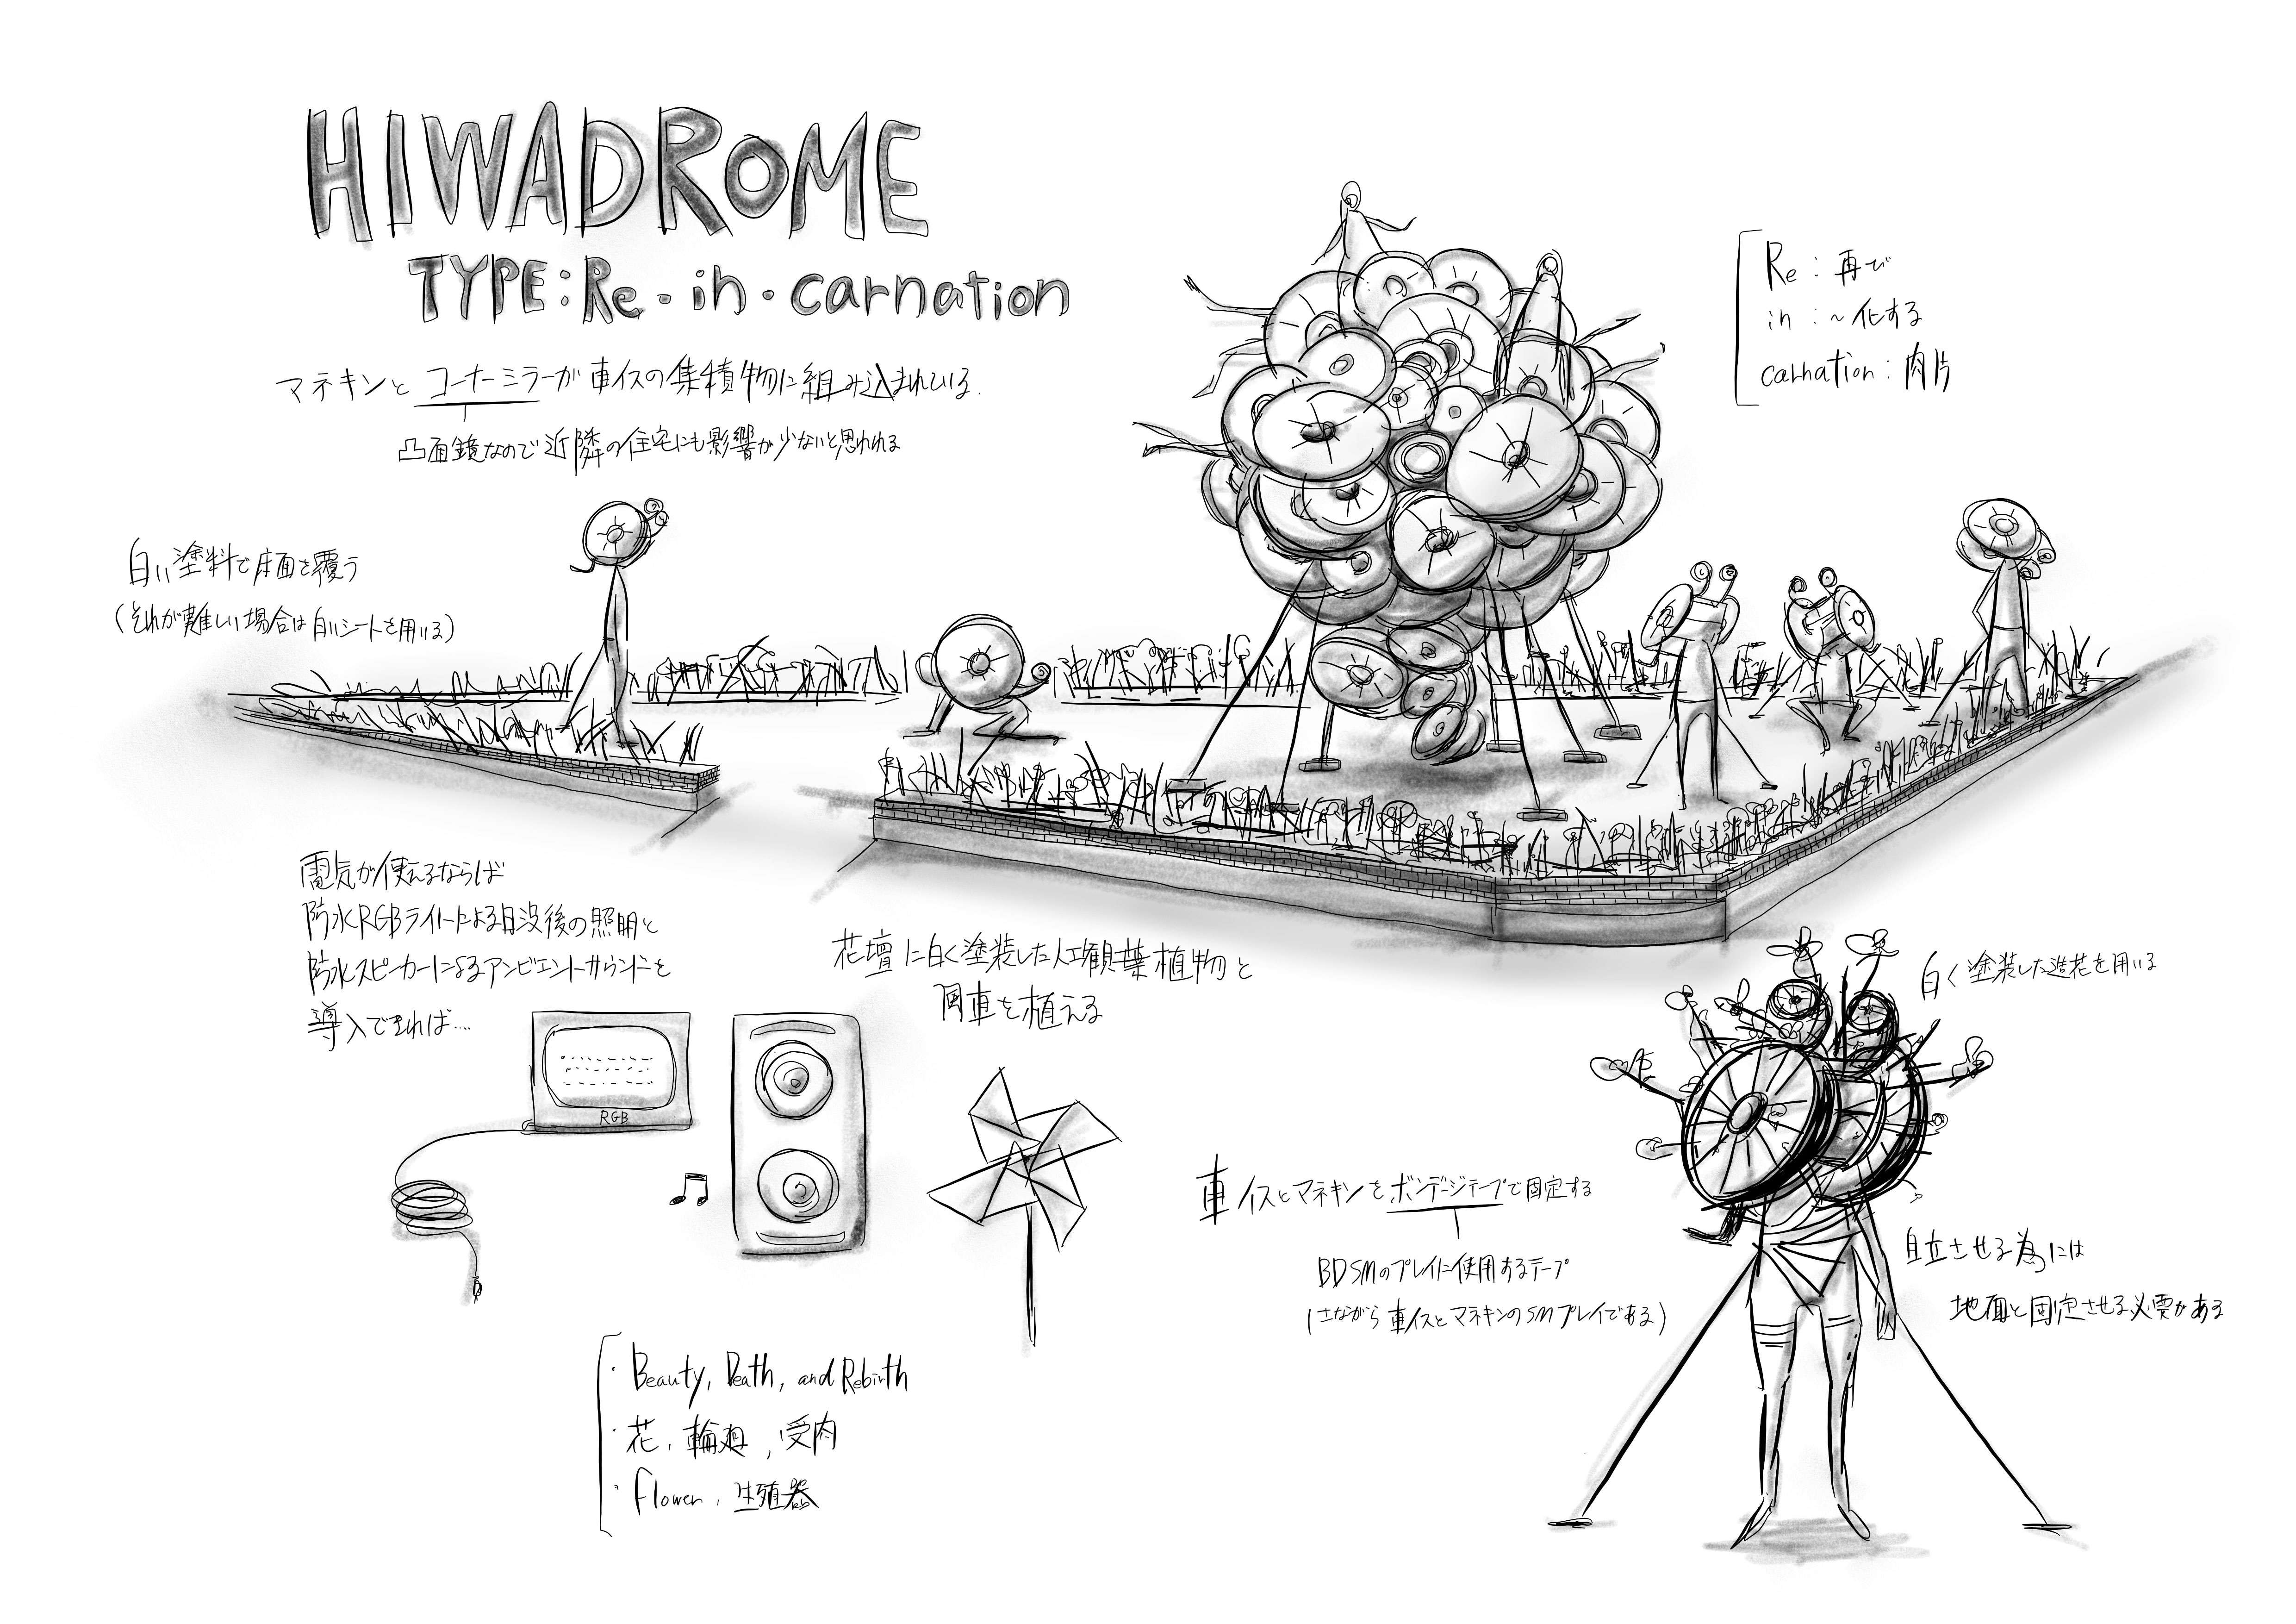 HIWADROME
TYPE:Re・in・carnation
マネキンとコーナーミラーが車イスの集積物に組み込まれている.
凸面鏡なので近隣の住宅にも影響が少ないと思われる
Re:再び
in:~化する
carnation:肉片
白い塗料で床面を覆う
(それが難しい場合は白いシートを用いる)
電気が使えるならば
防水RGBライトによる日没後の照明と
防水スピーカーによるアンビエントサウンドを
導入できれば....
RGB
花壇に白く塗装した人工観葉植物と
風車を植える
白く塗装した造花を用いる
車イスとマネキンをボンデージテープで固定する
BDSMのプレイに使用するテープ
(さながら車イスとマネキンのSMプレイである)
自立させる為には
地面と固定させる必要がある
・Beauty, Death, and Rebirth
・花, 輪廻, 受肉
・Flower, 生殖器